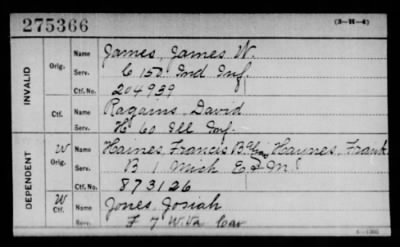 275366
(3-H-4)
INVALID
Orig.
Name James, James W.
Serv. C 150 Ind Inf.
Ctf. No. 204939
Ctf.
Name Ragains, David
Serv. H 60 Ill Inf.
DEPENDENT
W Orig.
Name Haines, Francis B alias Haynes, Frank
Serv. B 1 Mich E & M
Ctf. No. 873126
W Ctf.
Name Jones, Josiah
Serv. F 7 W. Va Cav